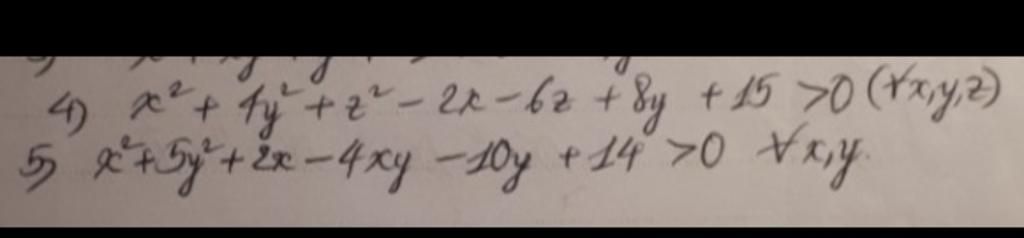 4) x² + 4y² + z² - 2x - 6z + 8y + 15 > 0 (∀x,y,z)
5) x² + 5y² + 2x - 4xy - 10y + 14 > 0 ∀x,y.